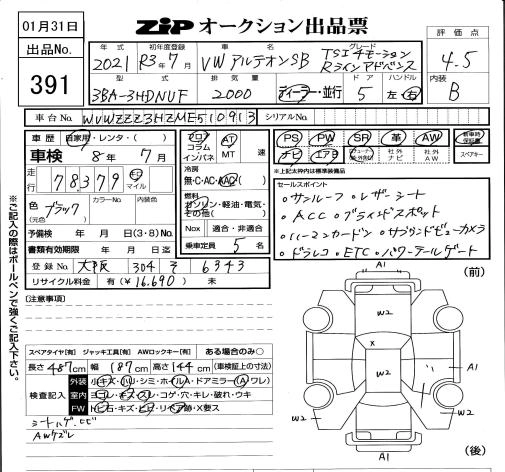 01月31日
出品No.
391
ZIP オークション出品票
評価点
4.5
内装
B
年式 初年度登録 車名 グレード
2021 R3年7月 VWアルテオンSB TSIエモーション
Rラインアドバンス
型式 排気量 ドア ハンドル
3BA-3HDNUF 2000 ディーラー・並行 5 左・右
車台No. WVWZZZ3HZME510913 シリアルNo.
車歴 自家用・レンタ・( )
車検 8年 7月
走行 78379 キロ マイル
色(元色) ブラック カラーNo. 内装色
予備検 年 月 日(3・8)No.
書類有効期限 年 月 日迄
登録No. 大阪 304 そ 6343
リサイクル料金 有(¥16,690) 未
フロア コラム インパネ
AT MT 速
冷房
無・C・AC・AAC( )
燃料
ガソリン・軽油・電気・
その他( )
Nox 適合・非適合
乗車定員 5 名
PS PW SR 革 AW 新車時保証書
ナビ エアB 社外ナビ 社外AW スペアキー
※上記太枠内は標準装備品
セールスポイント
・サンルーフ・レザーシート
・ACC・ブラインドスポット
・ハーマンカードン・サラウンドビューカメラ
・ドラレコ・ETC・パワーテールゲート
[注意事項]
スペアタイヤ[有] ジャッキ工具[有] AWロックキー[有] ある場合のみ○
長さ487cm 幅187cm 高さ144cm (車検証上の寸法)
検査記入
外装 小キズ・ハリ・シミ・ホイルA・ドアミラー(A・ワレ)
室内 ヨゴレ・キズ・スレ・コゲ・穴・キレ・破れ・ウキ
FW トビ石・キズ・ヒビ・リペア跡・X要ス
シートハゲ・ヒビ
AWスレ
※ご記入の際はボールペンで強くご記入下さい。
(前)
A1
W2
X
W2
A1
W2
W2
A1
(後)